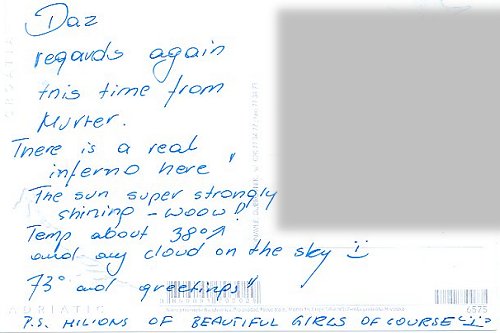 Daz
regards again
this time from
Murter.
There is a real
inferno here !
The sun super strongly
shining - woow!!
Temp about 38°↗
and any cloud on the sky :)
73° and greetings"
ADRIATIC
6575
P.S. MILIONS OF BEAUTIFUL GIRLS OF COURSE :)